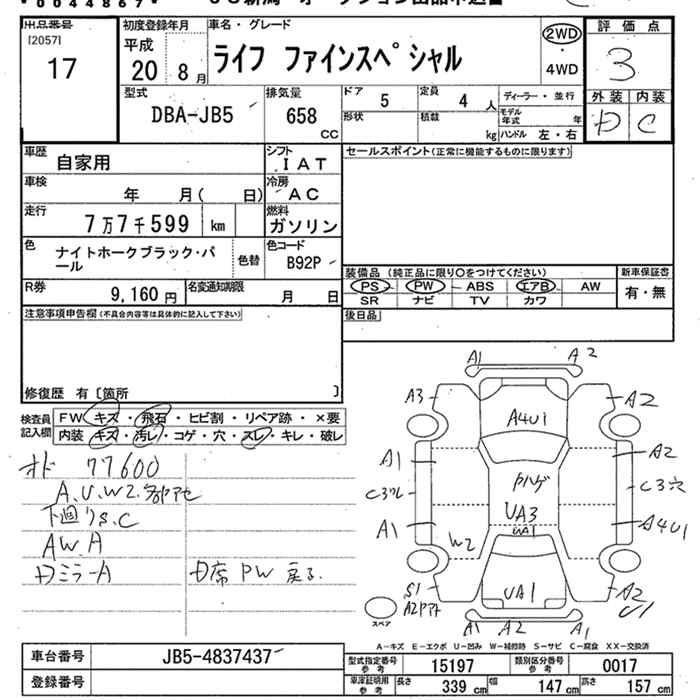 * 0044867 *
出品番号
[2057]
17
初度登録年月
平成
20 8 月
車名・グレード
ライフ ファインスペシャル
2WD
・
4WD
評価点
3
外装 内装
D C
型式
DBA-JB5
排気量
658 CC
ドア 5
定員 4 人
ディーラー・並行
モデル年式 年
形状
積載 kg
ハンドル 左・右
車歴
自家用
シフト
IAT
セールスポイント(正常に機能するものに限ります)
車検
年 月( 日)
冷房
AC
走行
7万7千599 km
燃料
ガソリン
色
ナイトホークブラック・パール
色替
色コード
B92P
R券
9,160 円
名変通知期限
月 日
装備品(純正品に限り〇をつけてください)
PS PW ABS エアB AW
SR ナビ TV カワ
新車保証書
有・無
後日品
注意事項申告欄(不具合内容等は具体的に記入して下さい)
修復歴 有〔箇所 〕
検査員記入欄
FW キズ・飛石・ヒビ割・リペア跡・×要
内装 キズ・汚レ・コゲ・穴・スレ・キレ・破レ
オド 77600
A.U.W2.
下廻りS.C
AW.A
Dミラ-A
D席 PW 戻る
A1 A2
A3 A2
A4U1
A1 A2
C3 C3穴
UA3
UA1
A1 A4U1
W2
S1 UA1 A2
U1
A1 A2 A1
スペア
A-キズ E-エクボ U-凹み W-補修跡 S-サビ C-腐食 XX-交換済
車台番号
JB5-4837437
登録番号
型式指定番号 参考
15197
類別区分番号 参考
0017
車庫証明用 参考
長さ 339 cm
幅 147 cm
高さ 157 cm